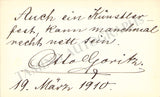 Auch ein Künstler-
fest, kann manchmal
recht nett sein.
Otto Goritz
19. März 1910.